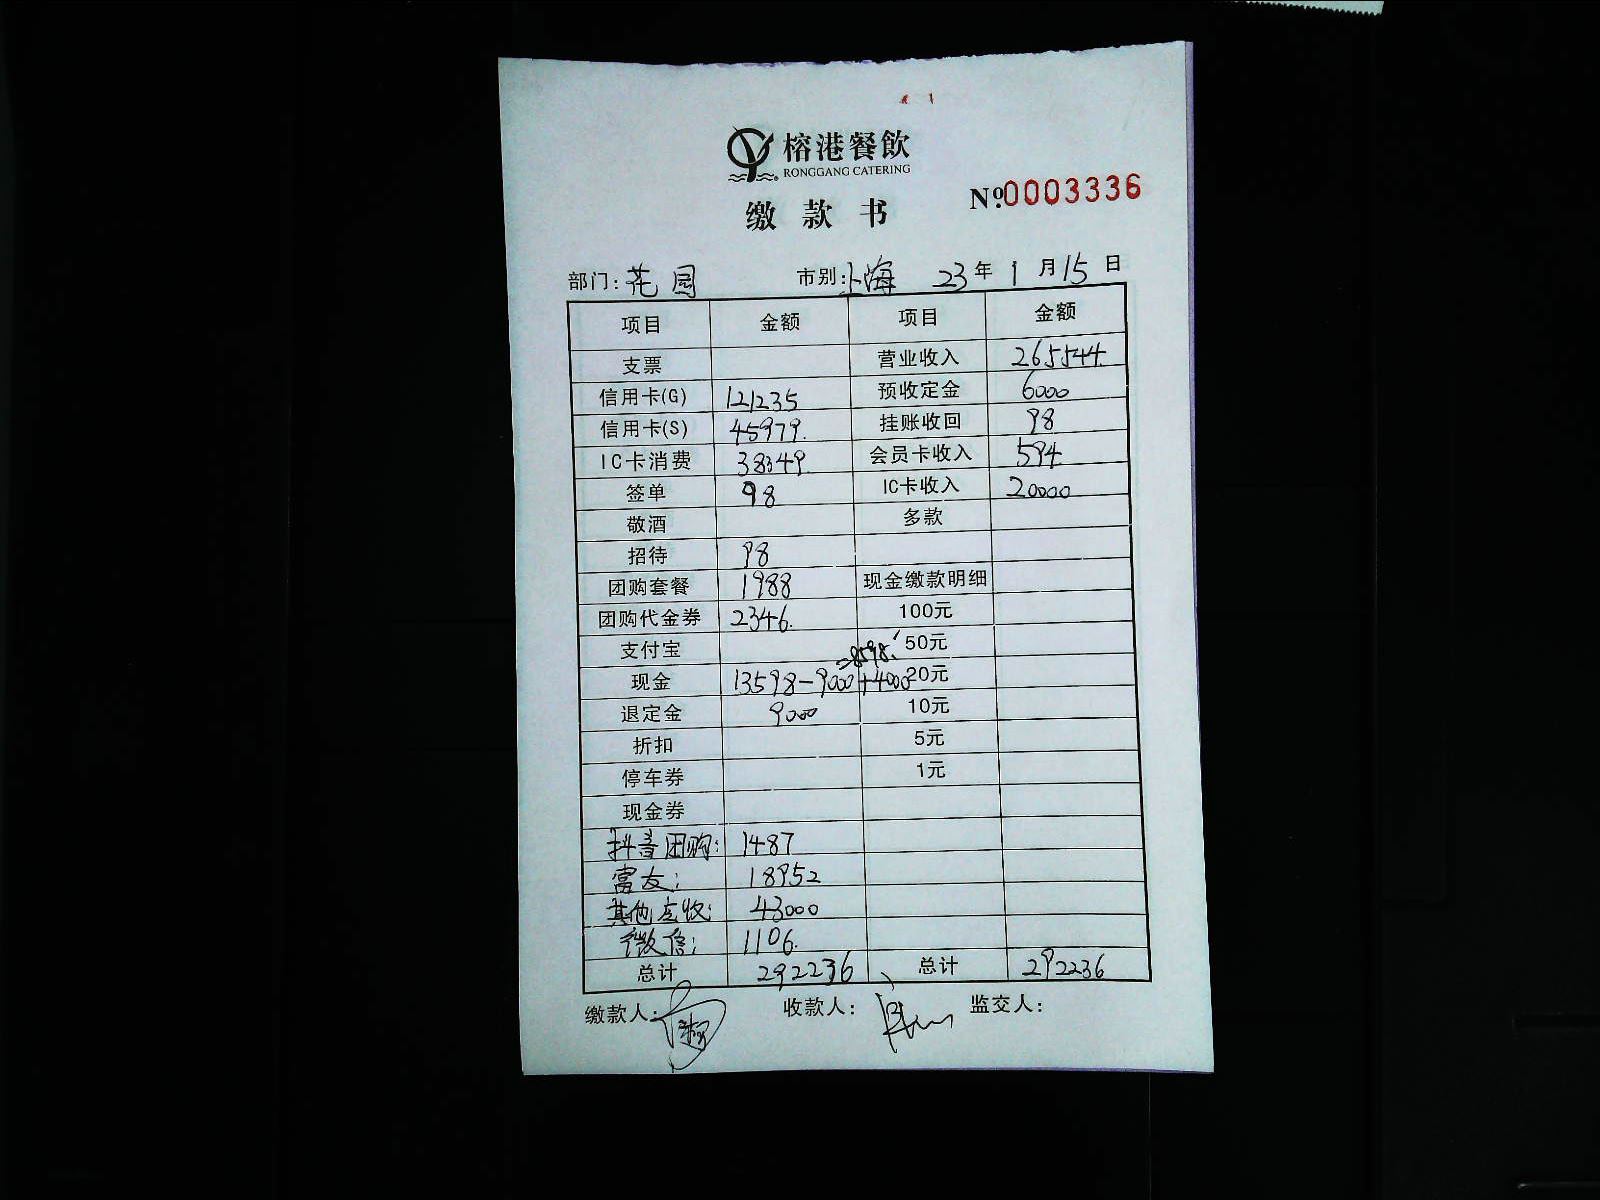 榕港餐飲
RONGGANG CATERING
缴款书
Nº.0003336
部门: 花园 市别: 上海 23年1月15日
项目 金额 项目 金额
支票 营业收入 265544.
信用卡(G) 121235 预收定金 6000
信用卡(S) 45979. 挂账收回 98
IC卡消费 38349. 会员卡收入 594
签单 98 IC卡收入 20000
敬酒 多款
招待 98
团购套餐 1988 现金缴款明细
团购代金券 2346. 100元
支付宝 50元
=8598.
现金 13598-9000+4000 20元
退定金 9000 10元
折扣 5元
停车券 1元
现金券
抖音团购: 1487
富友: 18952
其他应收: 43000
微信: 1106.
总计 292236 总计 292236
缴款人: 收款人: 监交人: